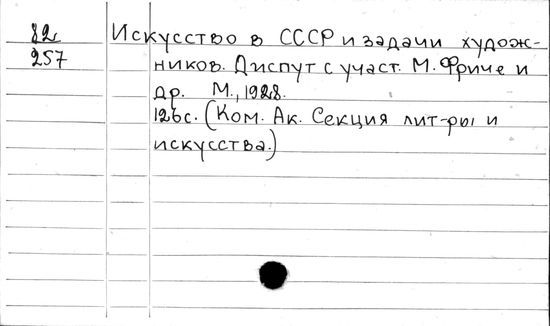 82 Искусство в СССР и задачи худож-
257 ников. Диспут с участ. М. Фриче и
др. М., 1928.
126с. (Ком. Ак. Секция лит-ры и
искусства.)